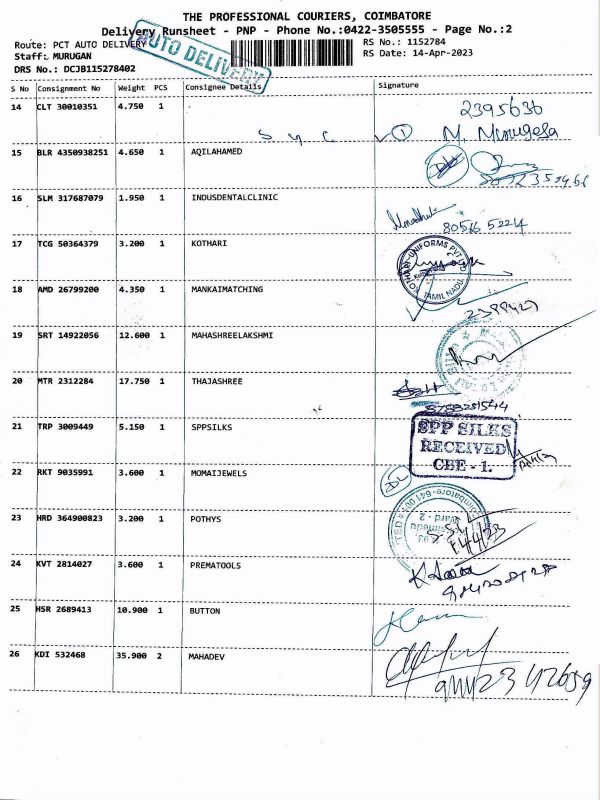 THE PROFESSIONAL COURIERS, COIMBATORE
Delivery Runsheet - PNP - Phone No.:0422-3505555 - Page No.:2
Route: PCT AUTO DELIVERY
RS No.: 1152784
Staff: MURUGAN
RS Date: 14-Apr-2023
DRS No.: DCJB115278402
AUTO DELIVERY
S No Consignment No Weight PCS Consignee Details Signature
14 CLT 30010351 4.750 1
2395636
15 BLR 4350938251 4.650 1 AQILAHAMED
16 SLM 317687079 1.950 1 INDUSDENTALCLINIC
17 TCG 50364379 3.200 1 KOTHARI
18 AMD 26799200 4.350 1 MANKAIMATCHING
19 SRT 14922056 12.600 1 MAHASHREELAKSHMI
20 MTR 2312284 17.750 1 THAJASHREE
21 TRP 3009449 5.150 1 SPPSILKS
SPP SILKS
RECEIVED
CBE - 1.
22 RKT 9035991 3.600 1 MOMAIJEWELS
23 HRD 364900823 3.200 1 POTHYS
24 KVT 2814027 3.600 1 PREMATOOLS
25 HSR 2689413 10.900 1 BUTTON
26 KDI 532468 35.900 2 MAHADEV